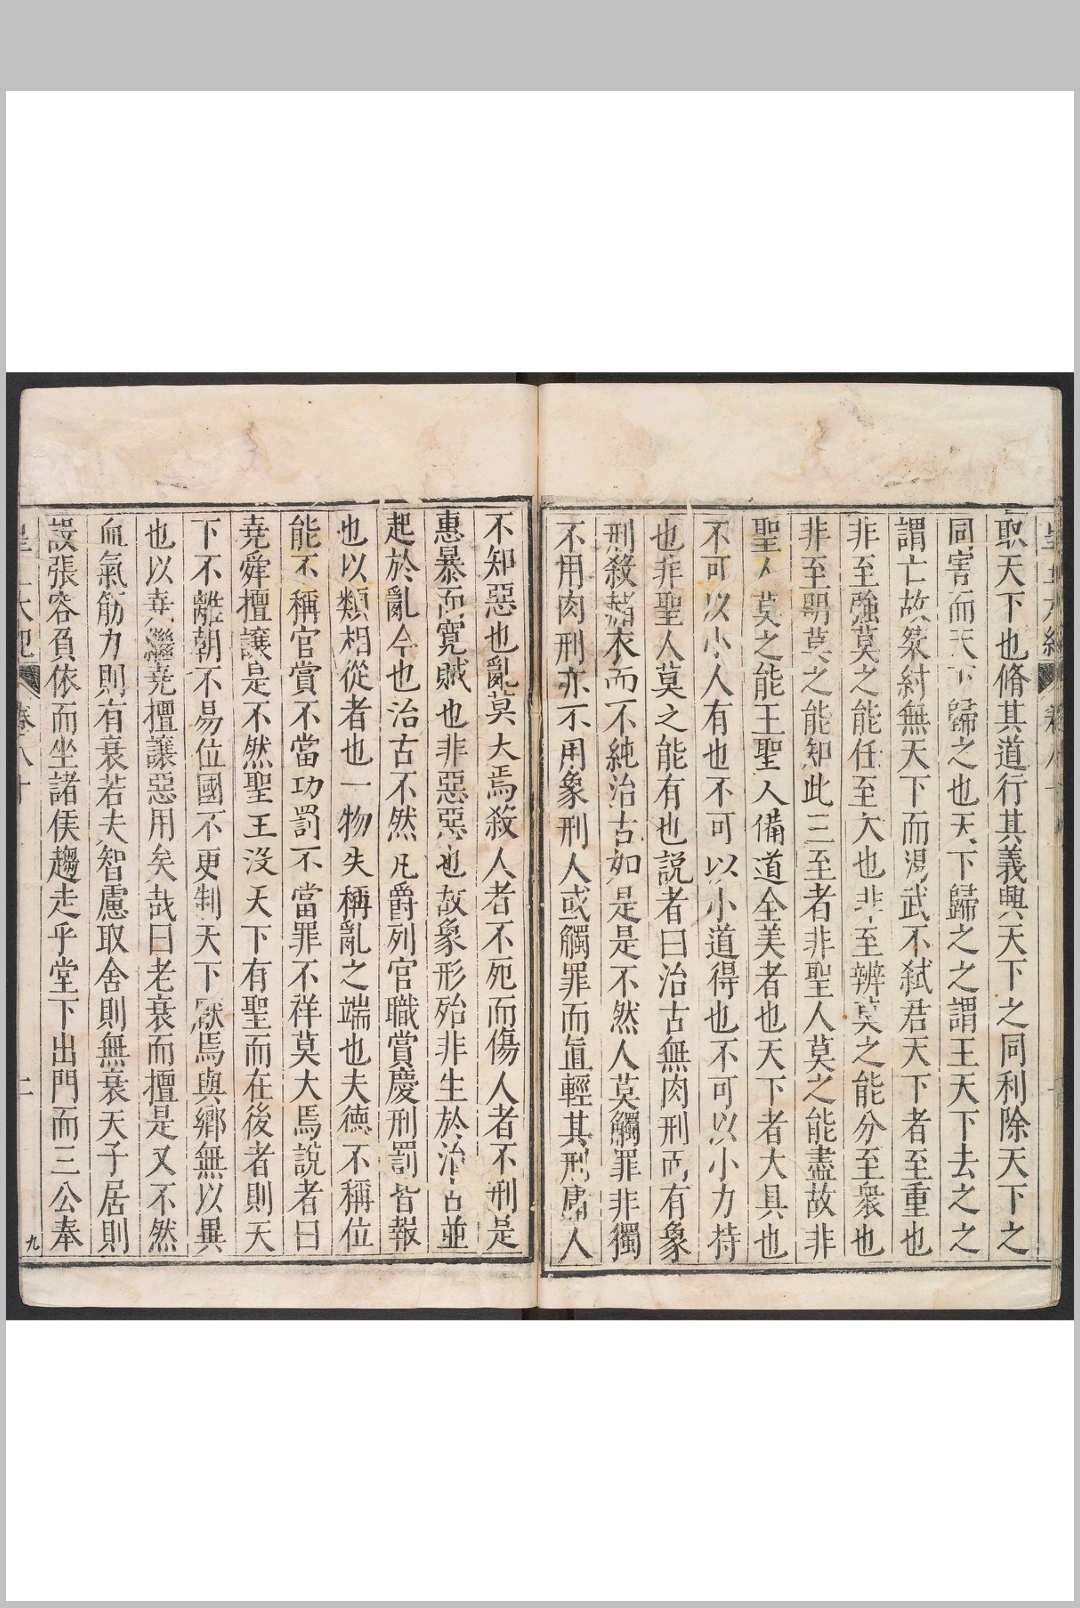 取天下也脩其道行其義興天下之同利除天下之
同害而天下歸之也天下歸之之謂王天下去之之
謂亡故桀紂無天下而湯武不弑君天下者至重也
非至強莫之能任至大也非至辨莫之能分至衆也
非至明莫之能知此三至者非聖人莫之能盡故非
聖人莫之能王聖人備道全美者也天下者大具也
不可以小人有也不可以小道得也不可以小力持
也非聖人莫之能有也説者曰治古無肉刑而有象
刑殺赭衣而不純治古如是是不然人莫觸罪非獨
不用肉刑亦不用象刑人或觸罪而直輕其刑庸人
不知惡也亂莫大焉殺人者不死而傷人者不刑是
惠暴而寛賊也非惡惡也故象形殆非生於治古並
起於亂今也治古不然凡爵列官職賞慶刑罰皆報
也以類相從者也一物失稱亂之端也夫德不稱位
能不稱官賞不當功罰不當罪不祥莫大焉説者曰
堯舜擅讓是不然聖王沒天下有聖而在後者則天
下不離朝不易位國不更制天下厭焉與鄉無以異
也以堯繼堯擅讓惡用矣哉曰老衰而擅是又不然
血氣筋力則有衰若夫智慮取舍則無衰天子居則
設張容負依而坐諸侯趨走乎堂下出門而三公奉
皇王大紀 卷八十 九